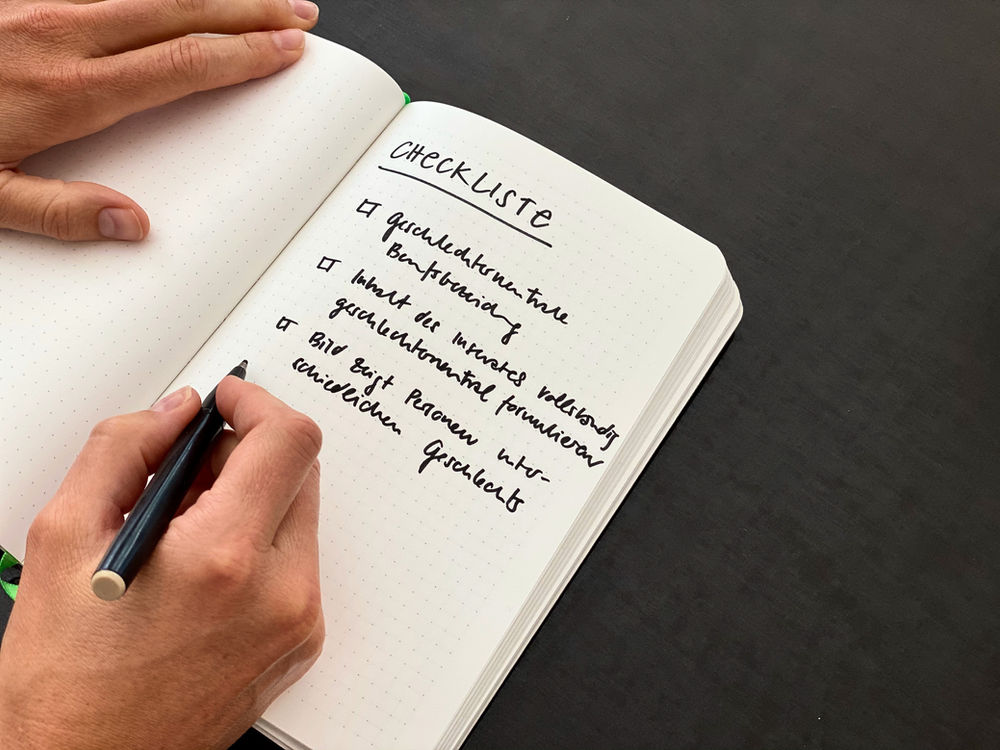 CHECKLISTE
geschlechterneutrale
Berufsbezeichnung
Inhalt des Inserates vollständig
geschlechterneutral formulieren
Bild zeigt Personen unter-
schiedlichen Geschlechts